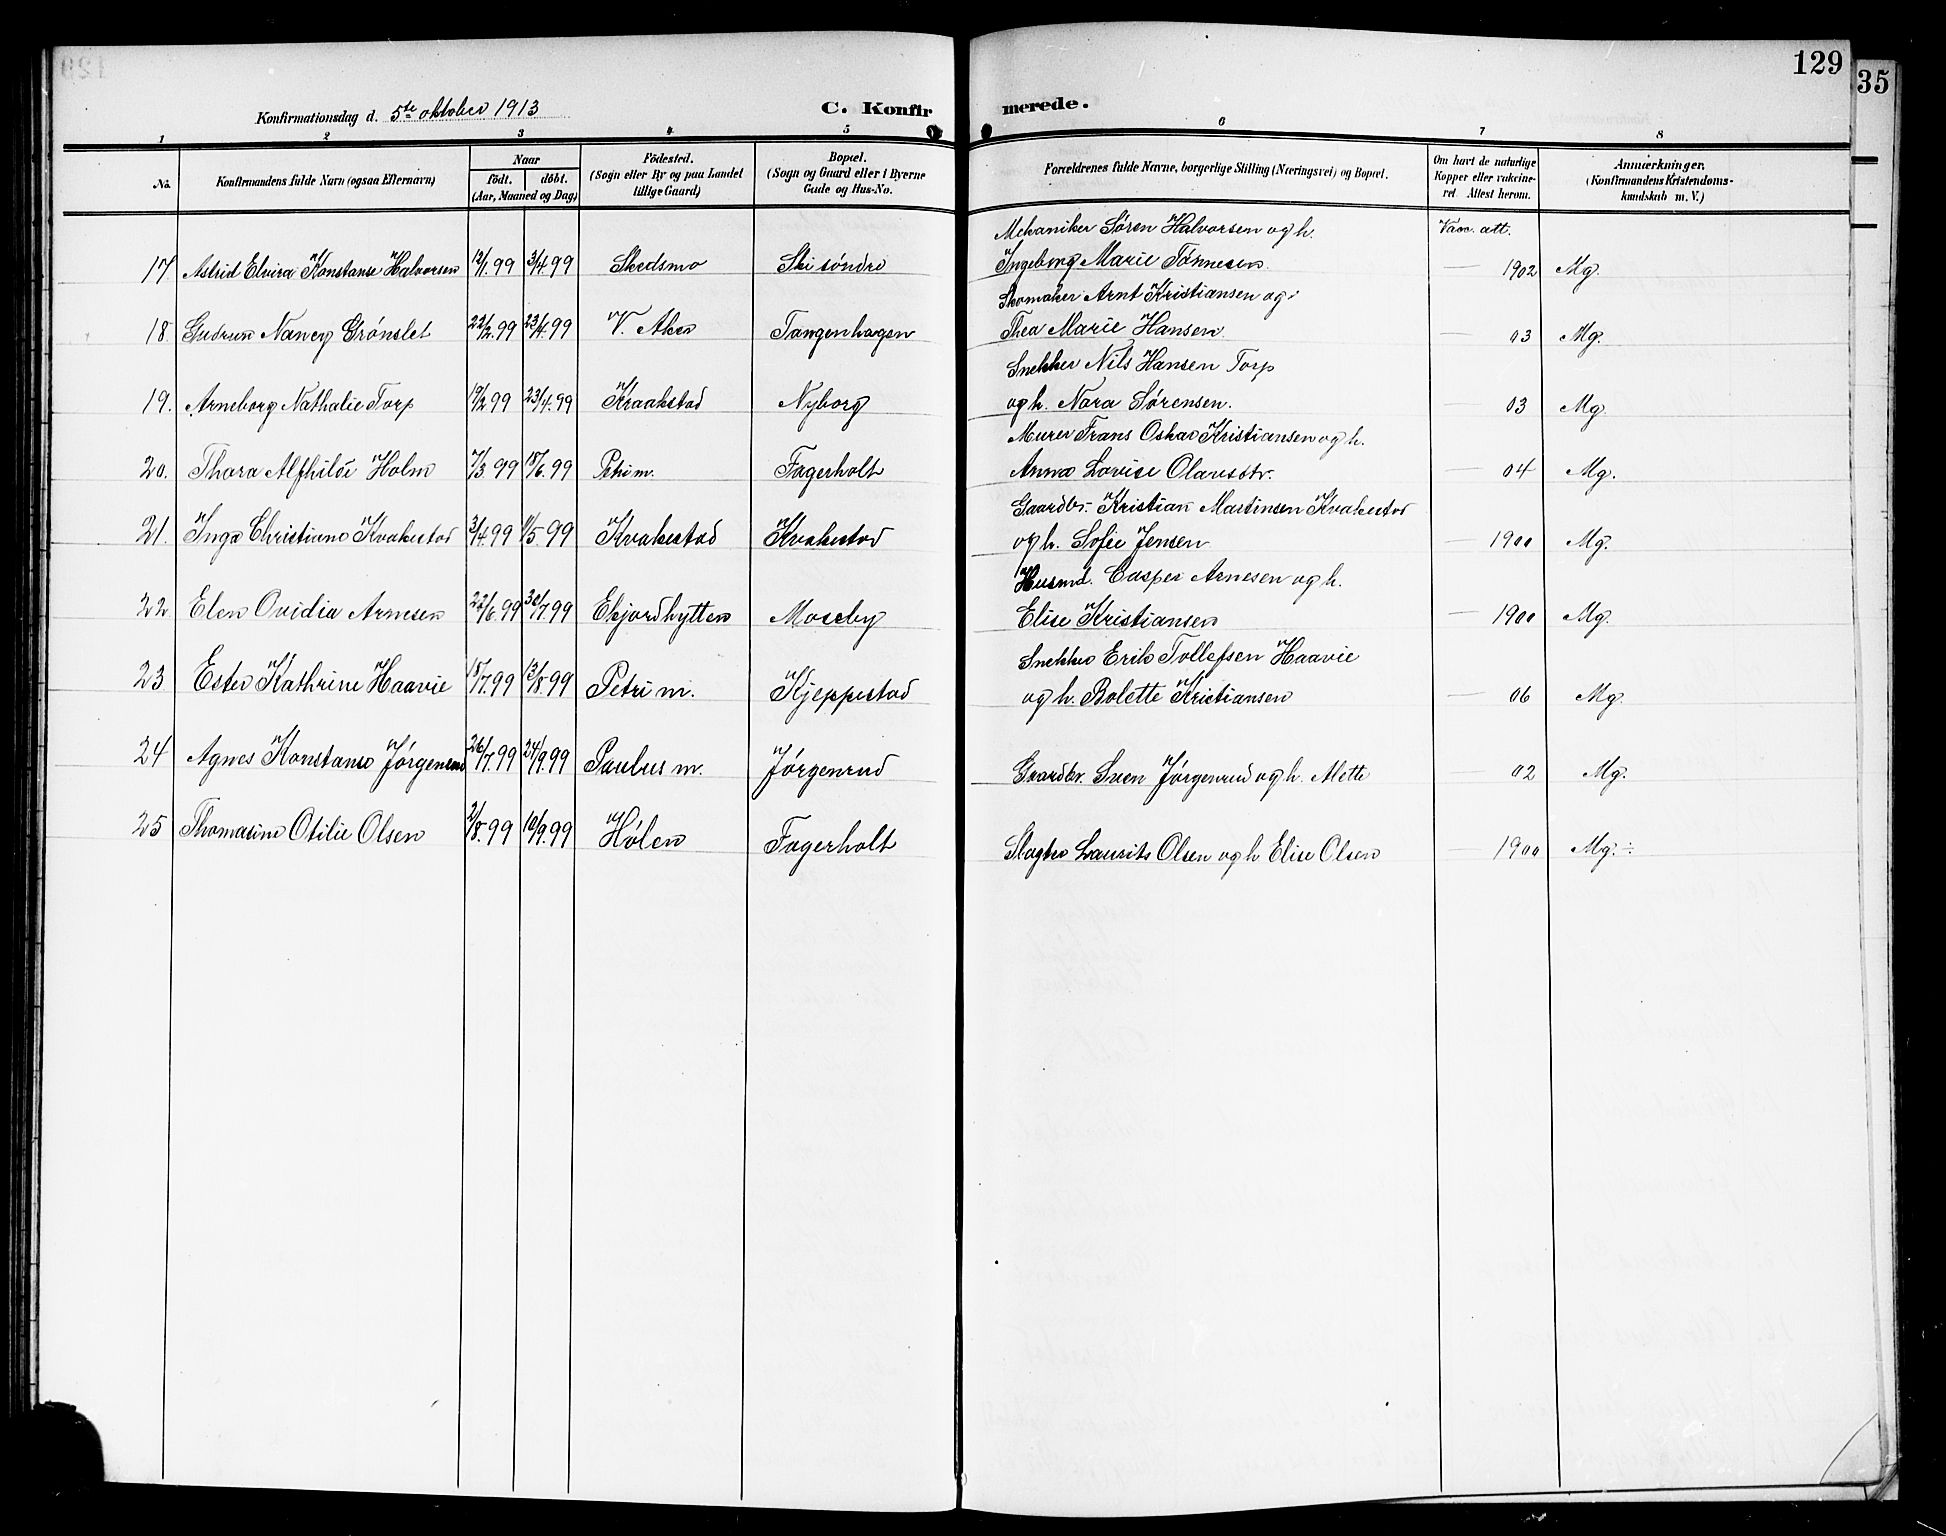 129
35
Konfirmationsdag d. 5te oktober 1913
C. Konfirmerede.
1 2 3 4 5 6 7 8
No. Konfirmandens fulde Navn (ogsaa Efternavn) Naar født. døbt. (Aar, Maaned og Dag) Fødested. (Sogn eller By og paa Landet tillige Gaard) Bopæl. (Sogn og Gaard eller i Byerne Gade og Hus-No. Forældrenes fulde Navne, borgerlige Stilling (Næringsvei) og Bopæl. Om havt de naturlige Kopper eller vakcineret. Attest herom. Anmærkninger. (Konfirmandens Kristendomskundskab m. V.)
Mekaniker Søren Halvorsen og h. Vacc. att.
17. Astrid Elvira Konstanse Halvorsen 12/1.99 3/4.99 Skedsmo Ski søndre Ingeborg Marie Tønnesen. — 1902 Mg.
Skomaker Arnt Kristiansen og
18. Gudrun Nancy Grønslet 22/2.99 23/4.99 V. Aker Tangenhagen Thea Marie Hansen. — 03 Mg.
Snekker Nils Hansen Torp
19. Arneborg Nathalie Torp 19/2 99 23/4.99 Kraakstad Nyborg og h. Nora Sørensen. — 03 Mg.
Murer Frans Oskar Kristiansen og h.
20. Thora Alfhild Holm 7/3 99 18/6.99 Petri m. Fagerholt Anna Lovise Olavsdtr. — 04 Mg.
Gaardbr. Kristian Martinsen Kvakestad
21. Inga Christiane Kvakestad 3/4.99 11/5.99 Kvakestad Kvakestad og h. Sofie Jensen — 1900 Mg.
Husmd. Casper Arnesen og h.
22. Elen Ovidia Arnesen 22/6.99 30/7.99 Ekjordhytten Moseby Elise Kristiansen — 1900 Mg.
Snekker Erik Tollefsen Haavie
23 Ester Kathrine Haavie 18/7.99 13/8.99 Petri m. Kjeppestad og h. Bolette Kristiansen — 06 Mg
24 Agnes Konstanse Jørgensrud 26/7.99 24/9.99 Paulus m. Jørgenrud Gaardbr. Sven Jørgenrud og h. Mette — 02 Mg.
25 Thomasine Otilie Olsen 2/8.99 10/9.99 Hølen Fagerholt Slagter Laurits Olsen og h Elise Olsen — 1900 Mg.÷